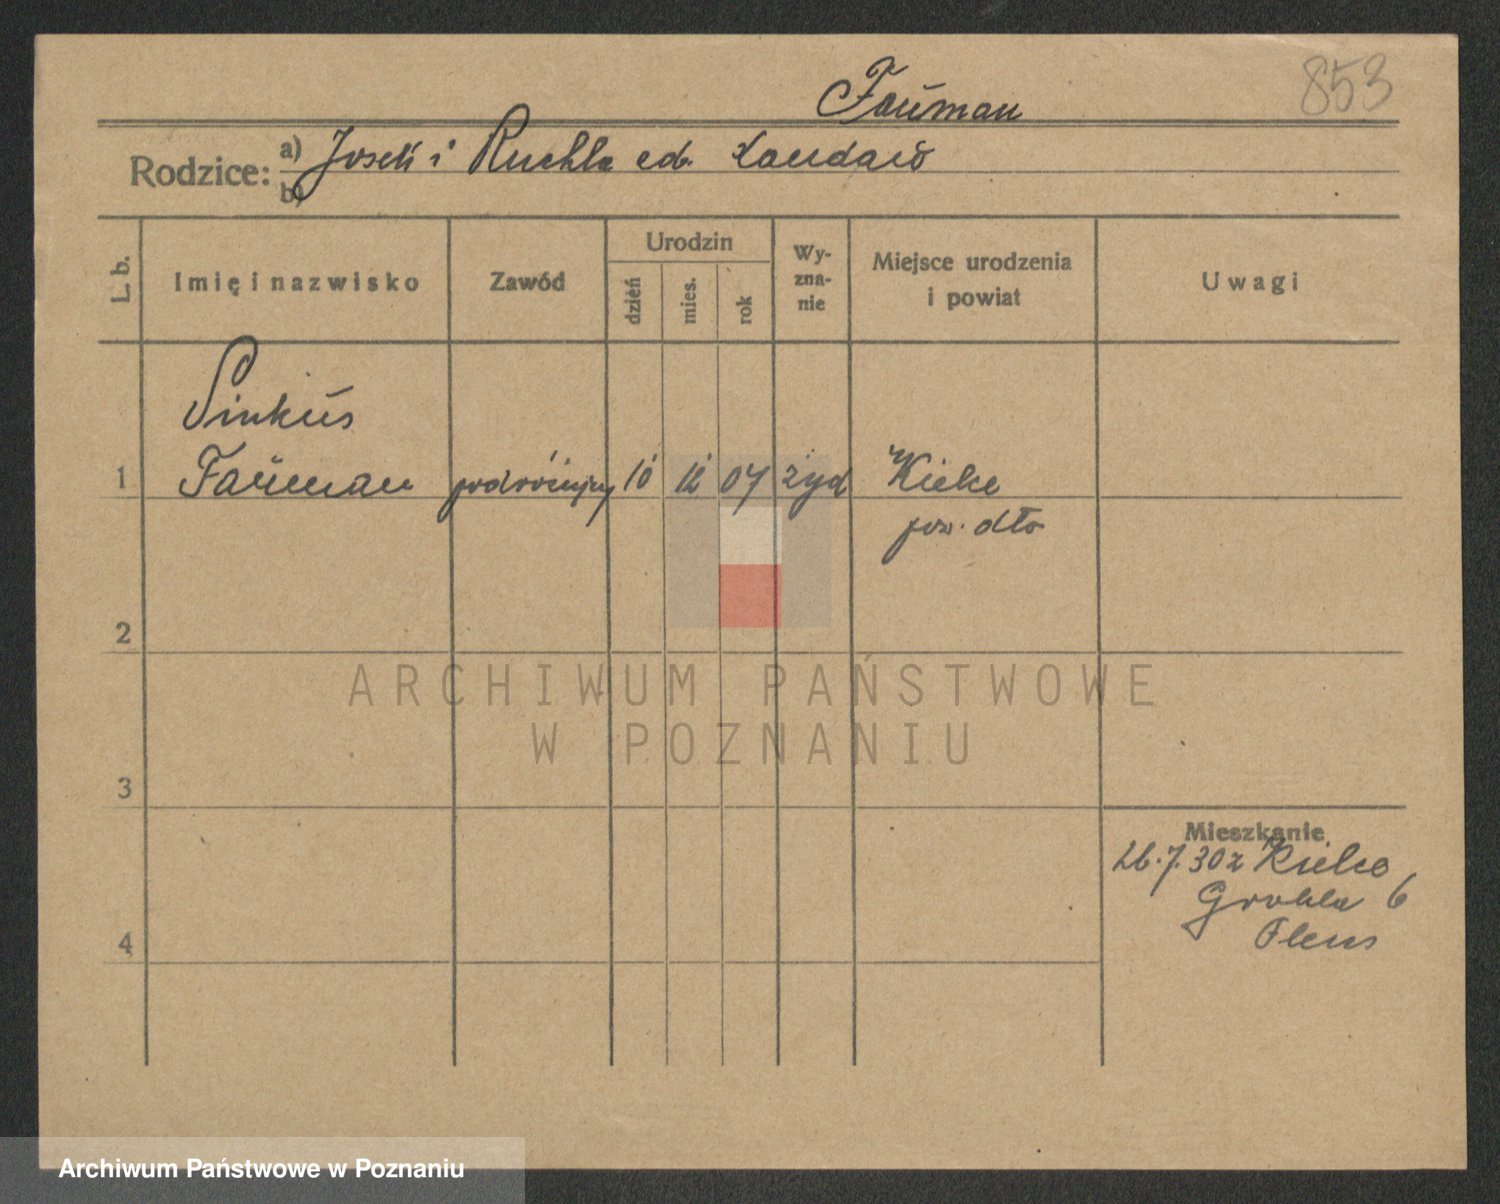 853
Fauman
Rodzice: a) Josek i Ruchla
b)
L. b.
Imię i nazwisko
Zawód
Urodzin
dzień
mies.
rok
Wy-
zna-
nie
Miejsce urodzenia
i powiat
Uwagi
Pinkus
1 Fauman podróżujący 10 12 07 żyd Kielce
pow. dło
2
3
4
Mieszkanie
7.30 z Kielce
6
ARCHIWUM PAŃSTWOWE
W POZNANIU
Archiwum Państwowe w Poznaniu